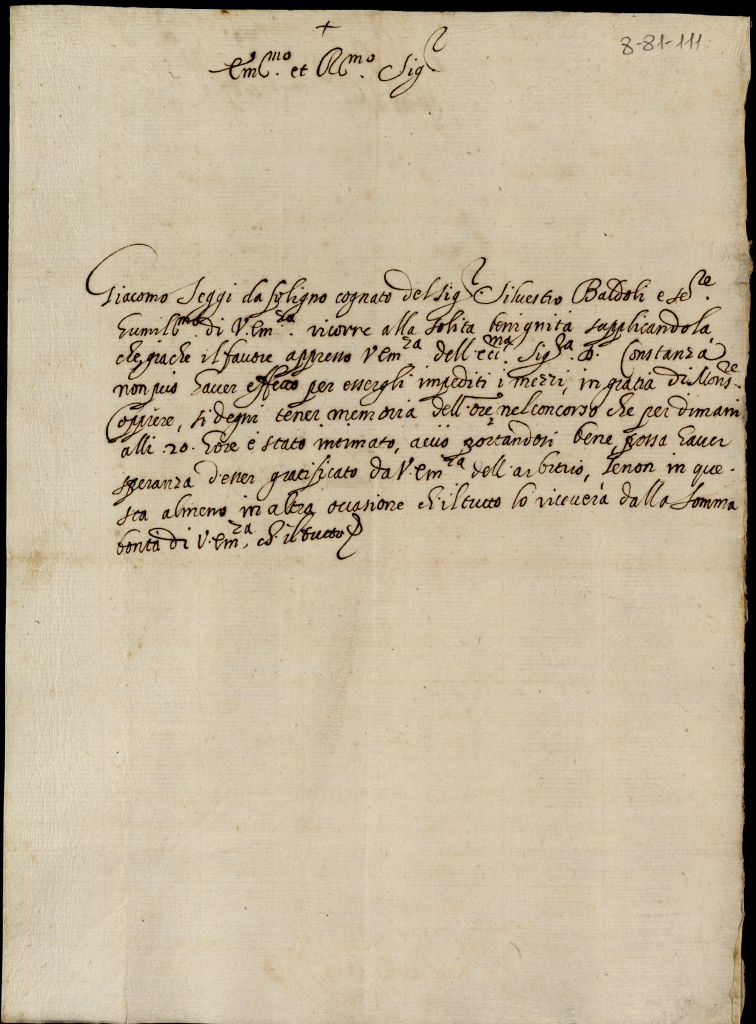 +
8-81-111
Em.mo et R.mo Sig.r
Giacomo Seggi da foligno cognato del Sig.r Silvestro Baldoli e se.re
humil.mo di V. Em.za ricorre alla solita benignità supplicandola
che giache il favore appresso V Em.za dell'ecc.ma Sig.ra D. Constanza
non può haver effetto per essergli impediti i mezzi, in gratia di Mons.re
Coppiere, si degni tener memoria dell'Ore nel concorso che per dimani
alli 20. hore è stato intimato, acciò portandosi bene possa haver
speranza d'esser gratificato da V. Em.za dell'arbitrio, senon in que-
sta almeno in altra occasione ch'il tutto lo riceverà dalla somma
bontà di V. Em.za, ch'il tutto